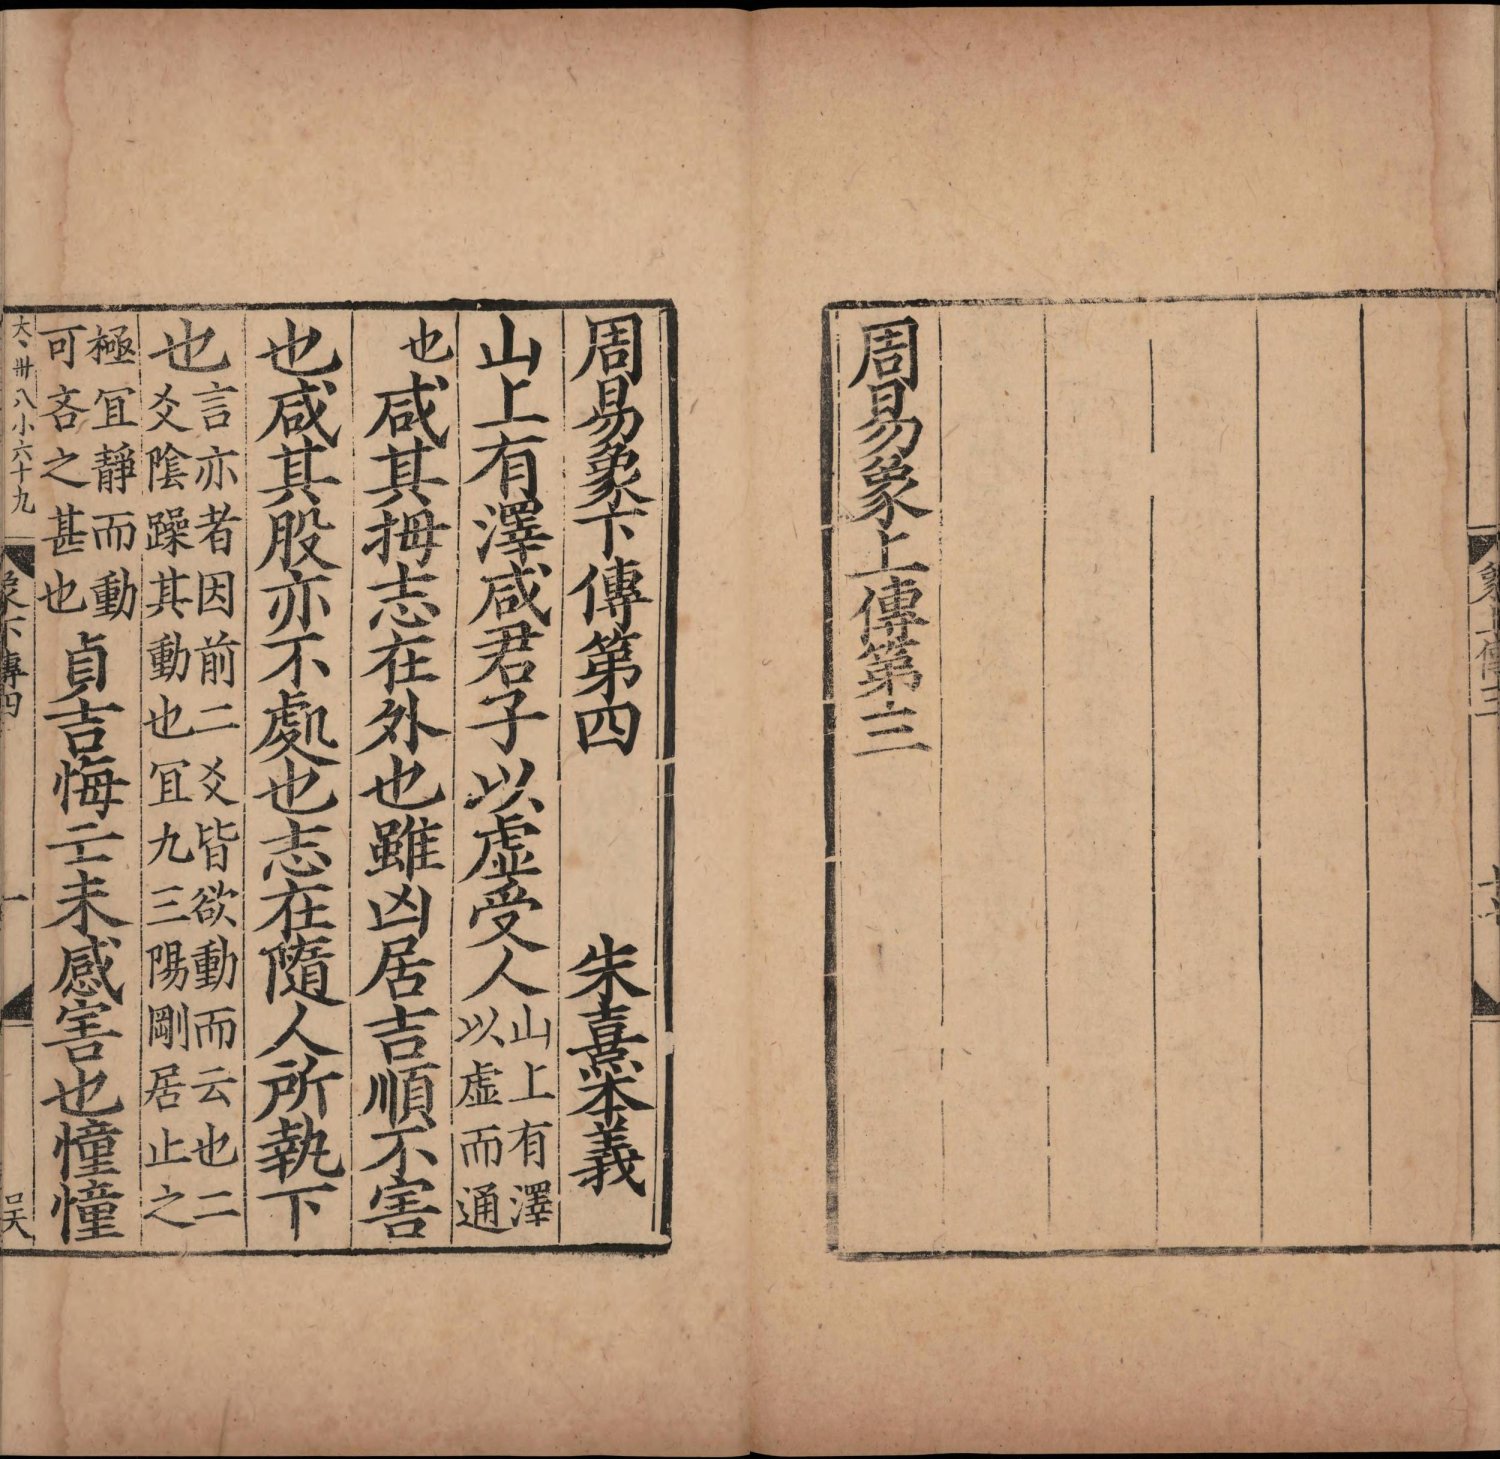 周易象上傳第三
周易象下傳第四 朱熹本義
山上有澤咸君子以虛受人山上有澤
以虛而通
也咸其拇志在外也雖凶居吉順不害
也咸其股亦不處也志在隨人所執下
也言亦者因前二爻皆欲動而云也二
爻陰躁其動也宜九三陽剛居止之
極宜靜而動
可吝之甚也貞吉悔亡未感害也憧憧
大卅八小六十九
象下傳四
一
吴